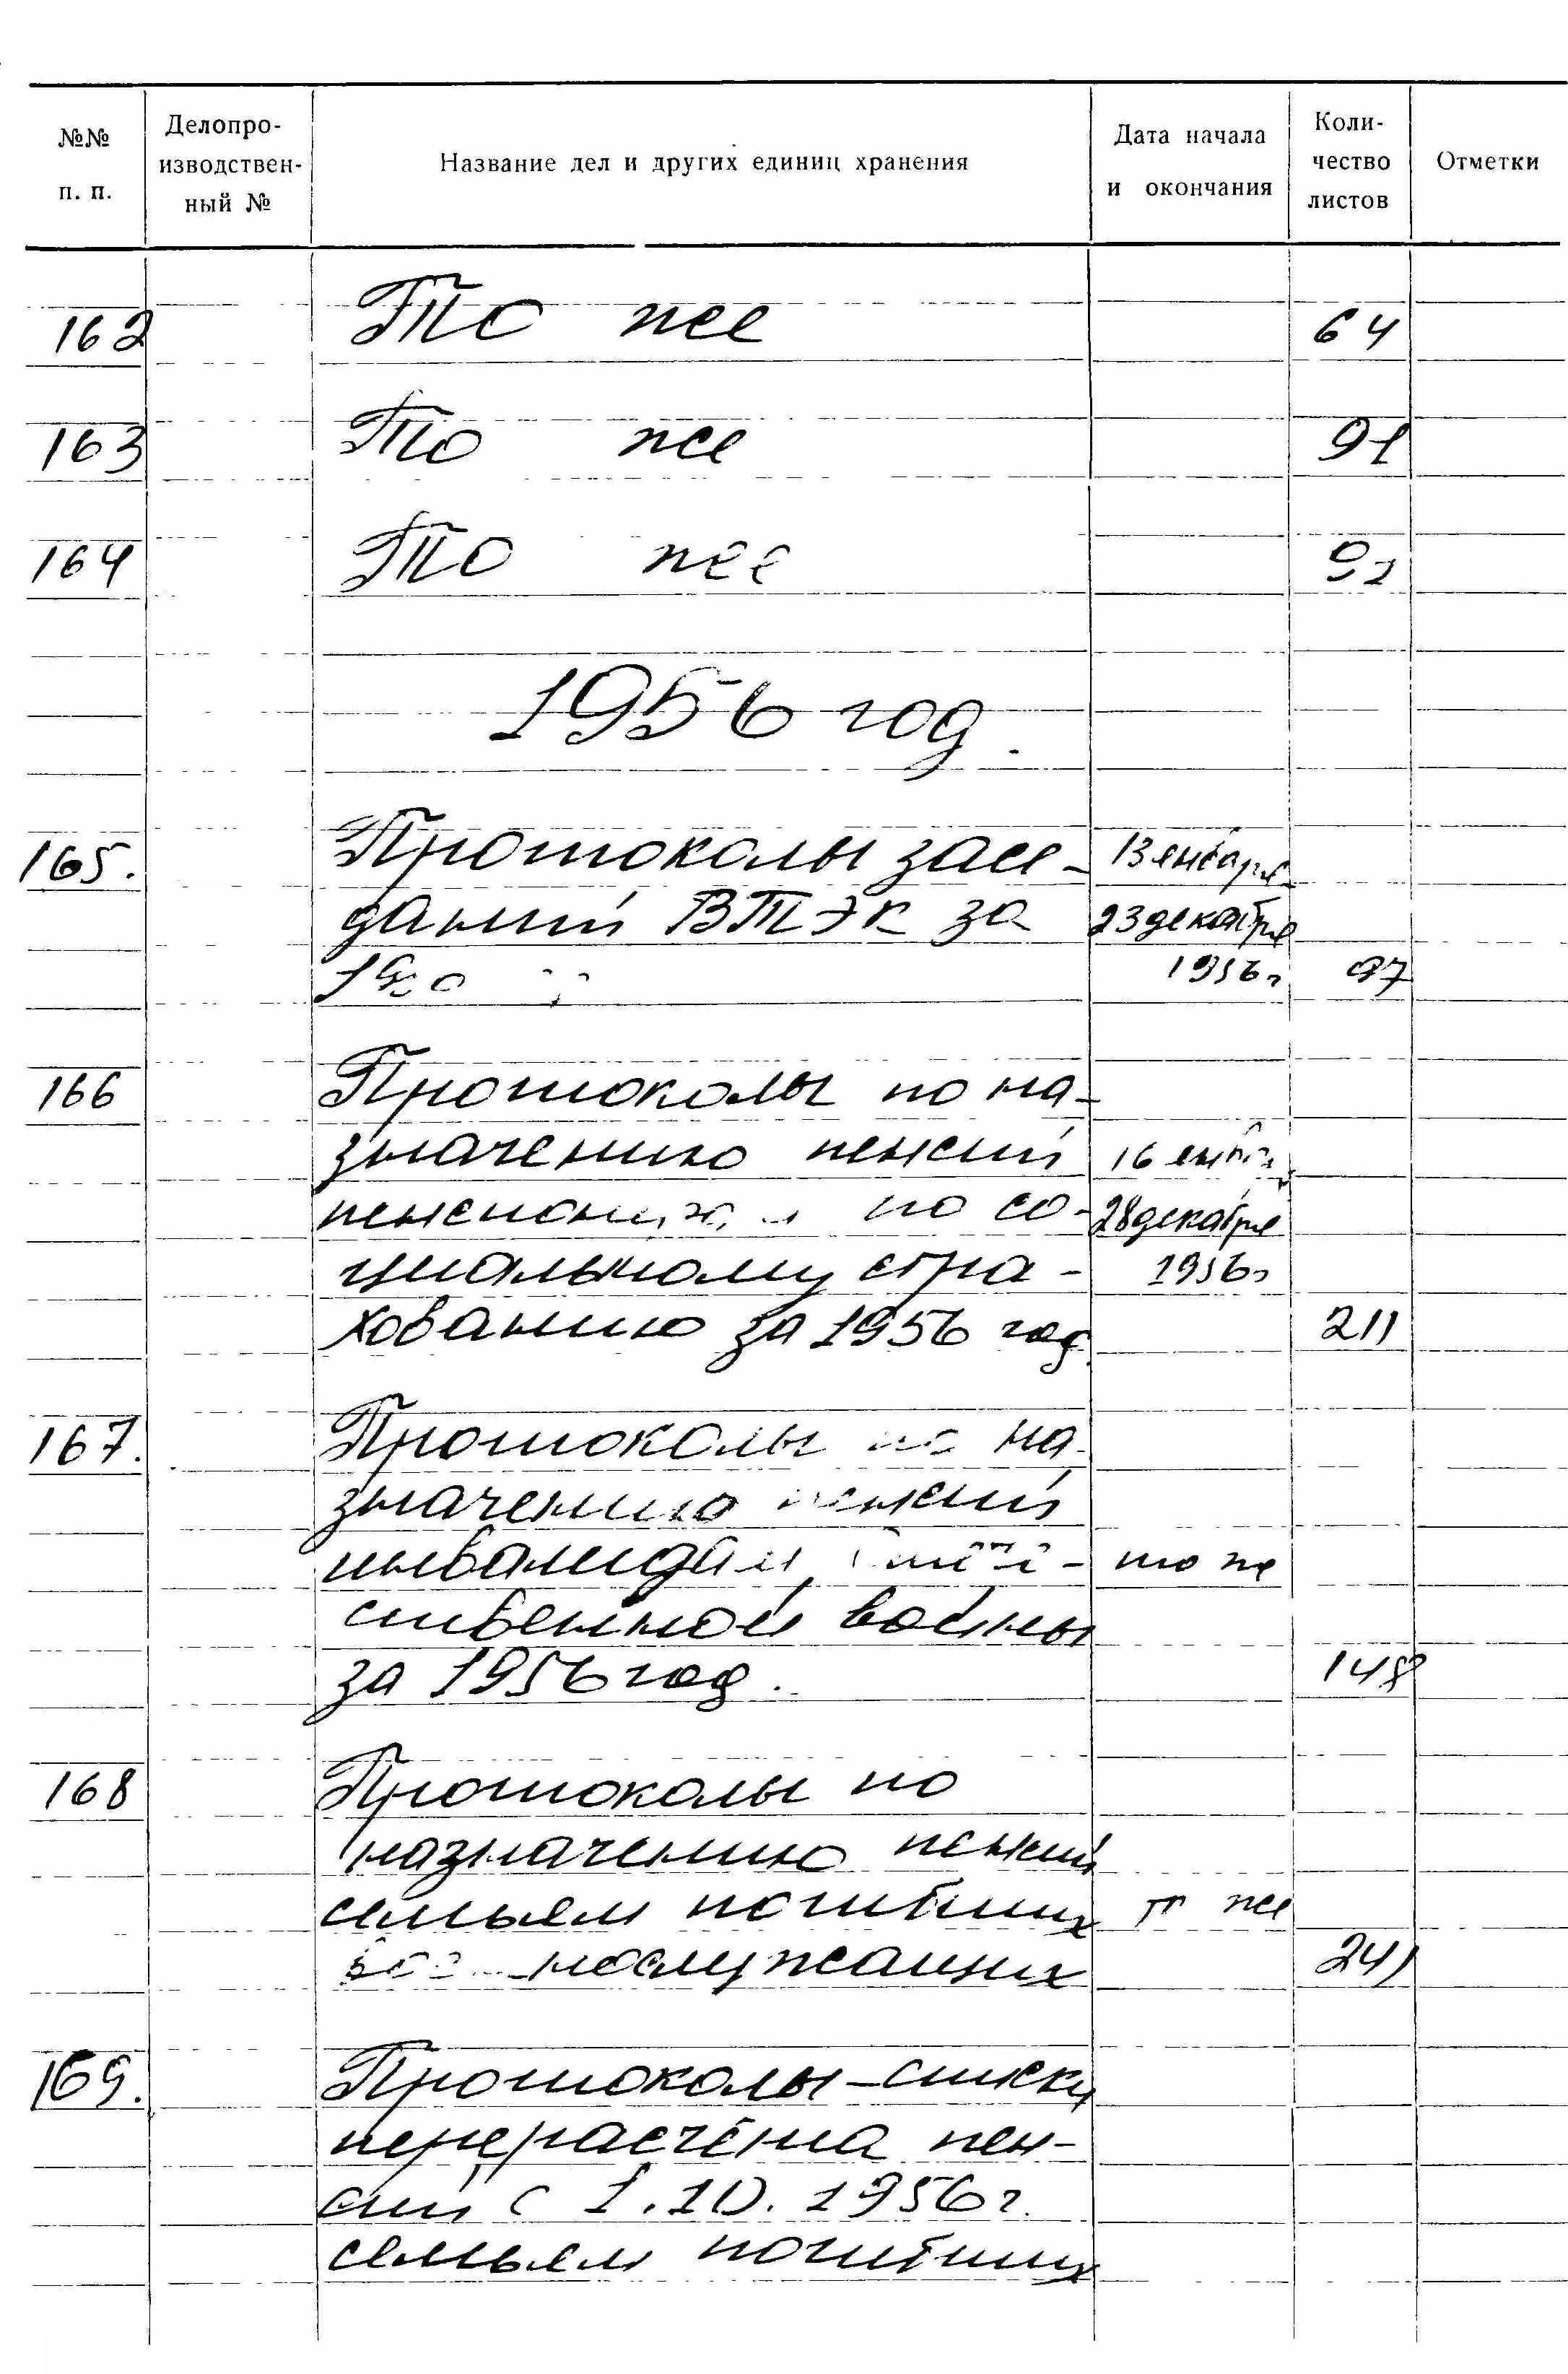 №№ п. п.
Делопро-
изводствен-
ный №
Название дел и других единиц хранения
Дата начала
и окончания
Коли-
чество
листов
Отметки
162 То же 64
163 То же 91
164 То же 92
1956 год.
165. Протоколы засе- 13 января
даний ВТЭК за 23 декабря
1956 г 97
166 Протоколы по на-
значению пенсий 16 янв
пенсионерам по со- 28 декабря
циальному стра- 1956г
хованию за 1956 год 211
167. Протоколы по на-
значению пенсий
инвалидам Отече- то же
ственной войны
за 1956 год. 148
168 Протоколы по
назначению пенсий
семьям погибших то же
военнослужащих 241
169. Протоколы-списки
перерасчёта пен-
сий с 1.10.1956г.
семьям погибших